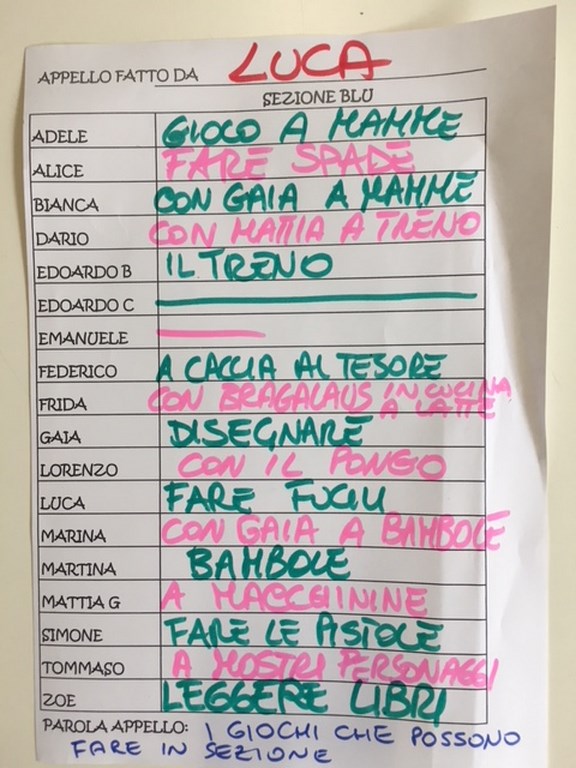 APPELLO FATTO DA LUCA
SEZIONE BLU
ADELE GIOCO A MAMME
ALICE FARE SPADE
BIANCA CON GAIA A MAMME
DARIO CON MATTIA A TRENO
EDOARDO B IL TRENO
EDOARDO C
EMANUELE
FEDERICO A CACCIA AL TESORE
FRIDA CON BRAGALAUS IN CUCINA A LATTE
GAIA DISEGNARE
LORENZO CON IL PONGO
LUCA FARE FUCILI
MARINA CON GAIA A BAMBOLE
MARTINA BAMBOLE
MATTIA G A MACCHININE
SIMONE FARE LE PISTOLE
TOMMASO A MOSTRI PERSONAGGI
ZOE LEGGERE LIBRI
PAROLA APPELLO: I GIOCHI CHE POSSONO
FARE IN SEZIONE